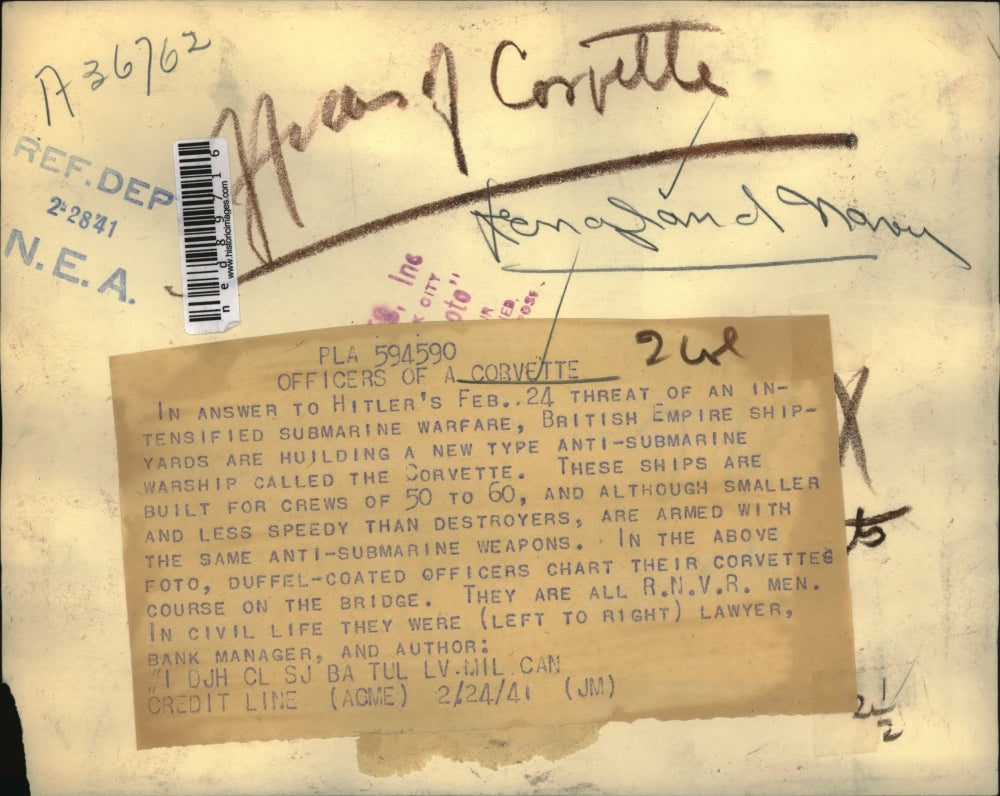 A36762
Officers of Corvette
REF. DEP
2-28 41
N.E.A.
ned89716
www.historicimages.com
England Navy
Inc
CITY
2 col
PLA 594590
OFFICERS OF A CORVETTE
IN ANSWER TO HITLER'S FEB..24 THREAT OF AN IN-
TENSIFIED SUBMARINE WARFARE, BRITISH EMPIRE SHIP-
YARDS ARE HUILDING A NEW TYPE ANTI-SUBMARINE
WARSHIP CALLED THE CORVETTE. THESE SHIPS ARE
BUILT FOR CREWS OF 50 TO 60, AND ALTHOUGH SMALLER
AND LESS SPEEDY THAN DESTROYERS, ARE ARMED WITH
THE SAME ANTI-SUBMARINE WEAPONS. IN THE ABOVE
FOTO, DUFFEL-COATED OFFICERS CHART THEIR CORVETTES
COURSE ON THE BRIDGE. THEY ARE ALL R.N.V.R. MEN.
IN CIVIL LIFE THEY WERE (LEFT TO RIGHT) LAWYER,
BANK MANAGER, AND AUTHOR:
#1 DJH CL SJ BA TUL LV.MIL CAN
CREDIT LINE (ACME) 2/24/41 (JM)